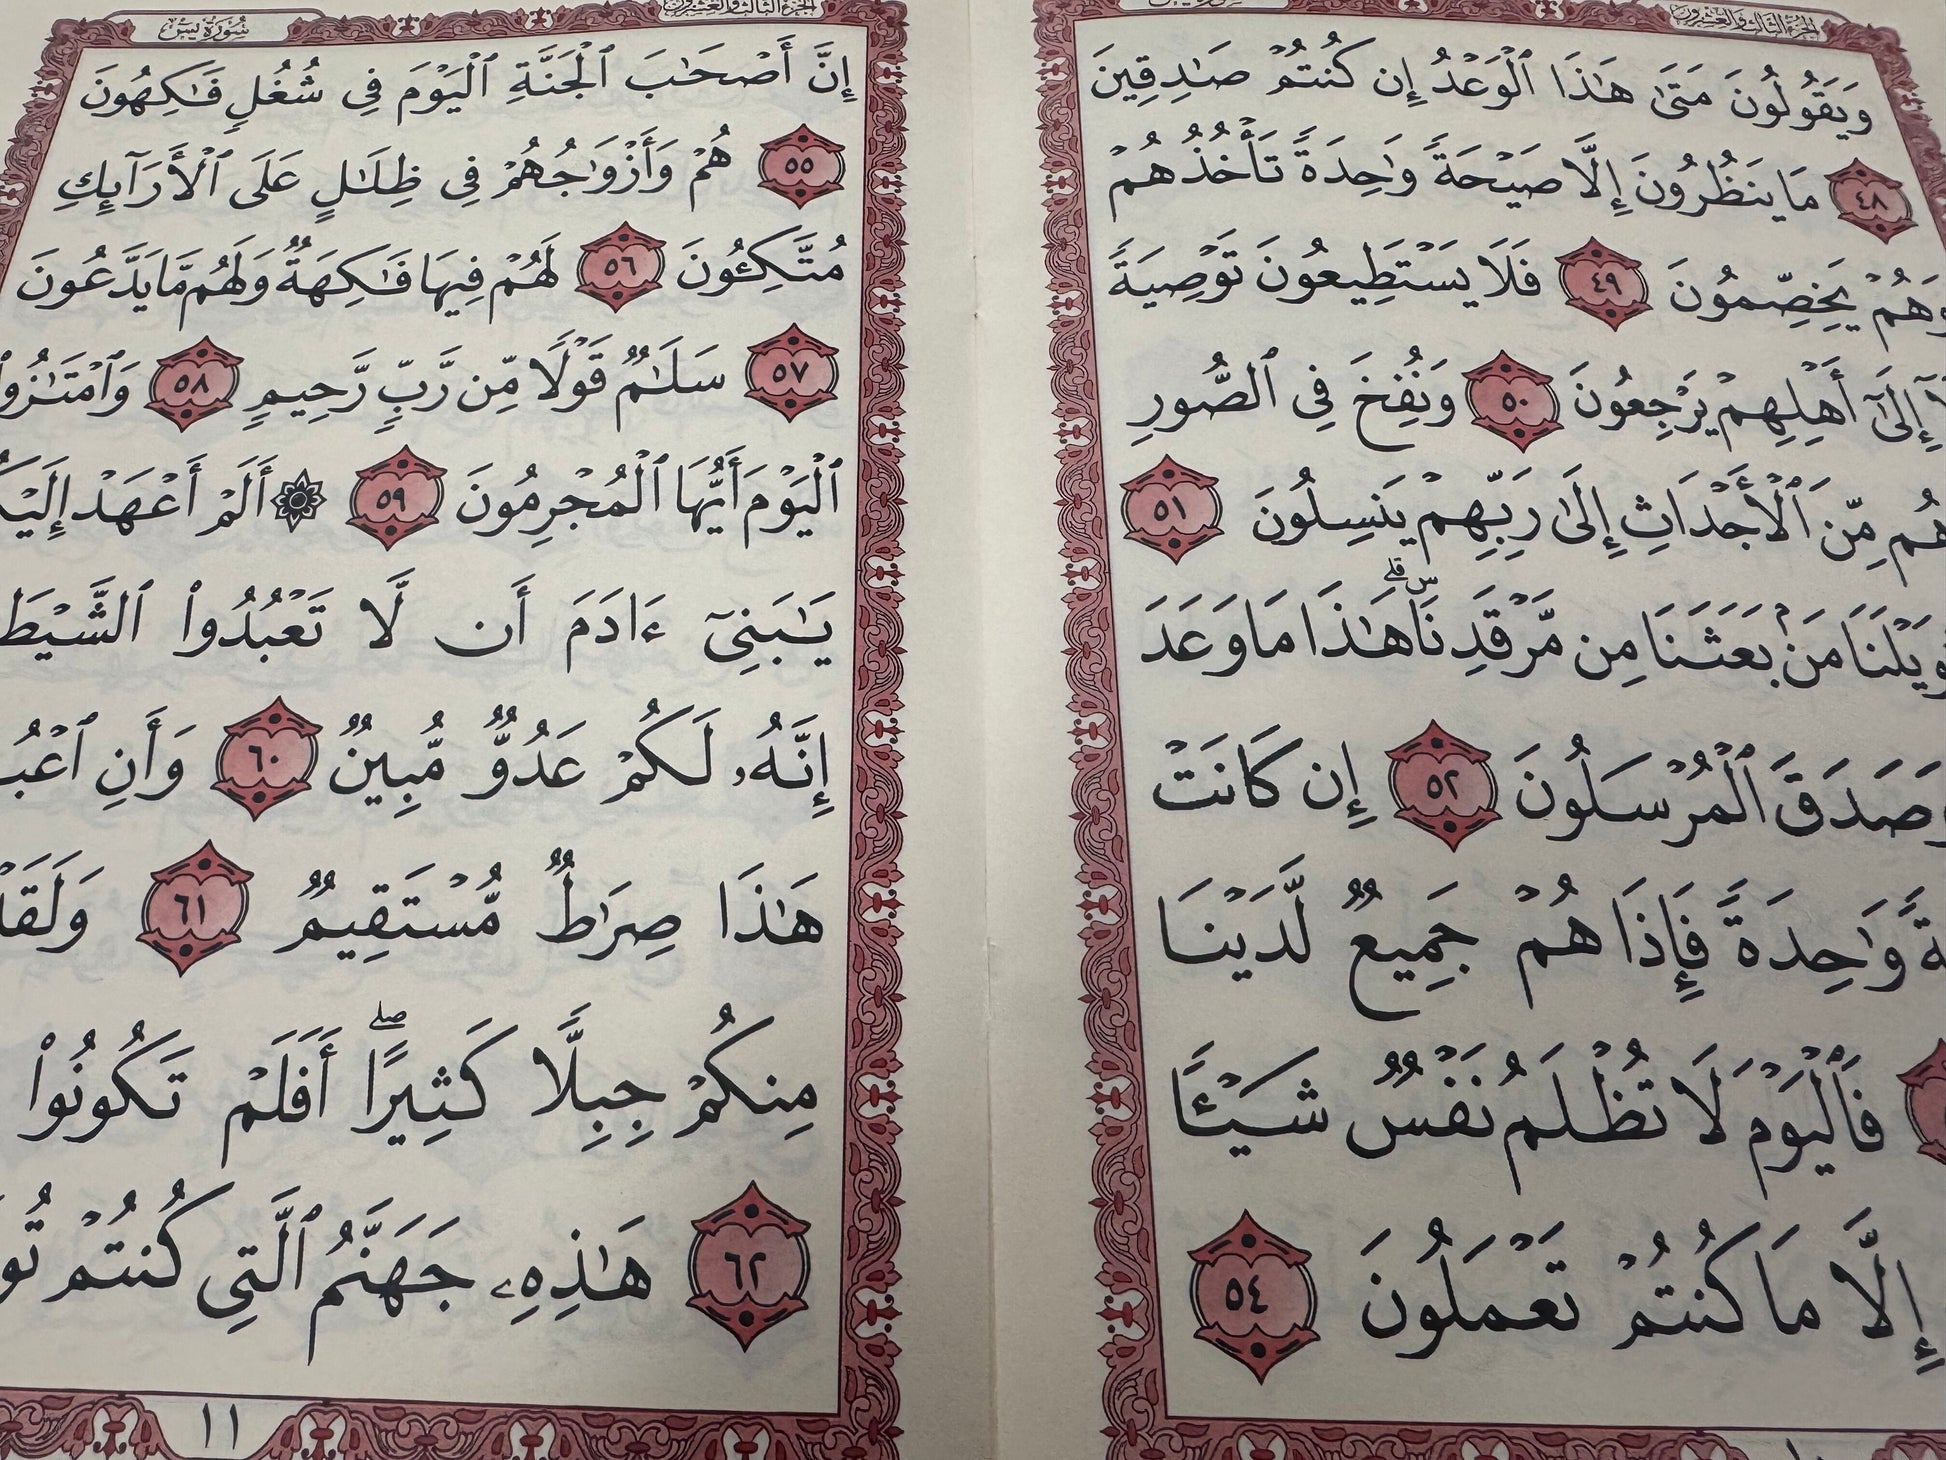 الجزء الثالث والعشرون
وَيَقُولُونَ مَتَىٰ هَٰذَا ٱلْوَعْدُ إِن كُنتُمْ صَٰدِقِينَ
٤٨ مَا يَنظُرُونَ إِلَّا صَيْحَةً وَٰحِدَةً تَأْخُذُهُمْ
وَهُمْ يَخِصِّمُونَ ٤٩ فَلَا يَسْتَطِيعُونَ تَوْصِيَةً
إِلَىٰٓ أَهْلِهِمْ يَرْجِعُونَ ٥٠ وَنُفِخَ فِى ٱلصُّورِ
هُم مِّنَ ٱلْأَجْدَاثِ إِلَىٰ رَبِّهِمْ يَنسِلُونَ ٥١
يَٰوَيْلَنَا مَنۢ بَعَثَنَا مِن مَّرْقَدِنَاۜۗ هَٰذَا مَا وَعَدَ
وَصَدَقَ ٱلْمُرْسَلُونَ ٥٢ إِن كَانَتْ
وَٰحِدَةً فَإِذَا هُمْ جَمِيعٌ لَّدَيْنَا
فَٱلْيَوْمَ لَا تُظْلَمُ نَفْسٌ شَيْـًٔا
إِلَّا مَا كُنتُمْ تَعْمَلُونَ ٥٤
الجزء الثالث والعشرون سُورَةُ يسٓ
إِنَّ أَصْحَٰبَ ٱلْجَنَّةِ ٱلْيَوْمَ فِى شُغُلٍ فَٰكِهُونَ
٥٥ هُمْ وَأَزْوَٰجُهُمْ فِى ظِلَٰلٍ عَلَى ٱلْأَرَآئِكِ
مُتَّكِـُٔونَ ٥٦ لَهُمْ فِيهَا فَٰكِهَةٌ وَلَهُم مَّا يَدَّعُونَ
٥٧ سَلَٰمٌ قَوْلًا مِّن رَّبٍّ رَّحِيمٍ ٥٨ وَٱمْتَٰزُوا۟
ٱلْيَوْمَ أَيُّهَا ٱلْمُجْرِمُونَ ٥٩ ۞ أَلَمْ أَعْهَدْ
يَٰبَنِىٓ ءَادَمَ أَن لَّا تَعْبُدُوا۟
إِنَّهُۥ لَكُمْ عَدُوٌّ مُّبِينٌ ٦٠ وَأَنِ
هَٰذَا صِرَٰطٌ مُّسْتَقِيمٌ ٦١ وَلَقَدْ
مِنكُمْ جِبِلًّا كَثِيرًاۖ أَفَلَمْ تَكُونُوا۟
٦٢ هَٰذِهِۦ جَهَنَّمُ ٱلَّتِى كُنتُمْ
١١